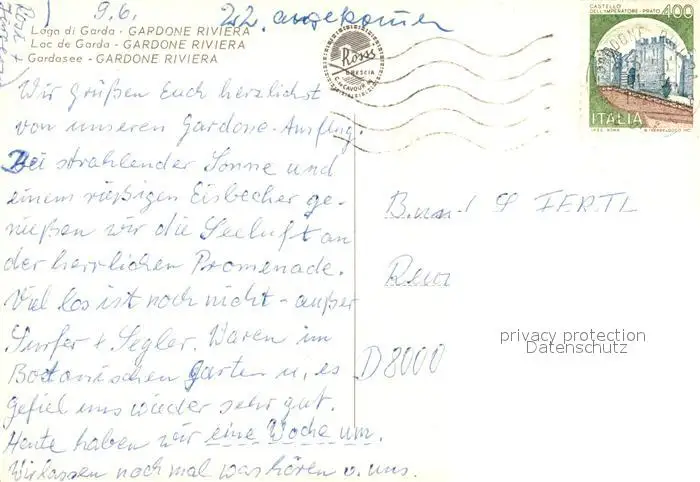 9.6.
22. angekommen
Lago di Garda - GARDONE RIVIERA
Lac de Garda - GARDONE RIVIERA
Gardasee - GARDONE RIVIERA
Ross
BRESCIA
CASTELLO
DELL'IMPERATORE - PRATO 400
ITALIA
Wir grüßen Euch herzlichst
von unserem Gardone-Ausflug.
Bei strahlender Sonne und
einem riesigen Eisbecher ge-
nießen wir die Seeluft an
der herrlichen Promenade.
Viel los ist noch nicht - außer
Surfer + Segler. Waren im
Botanischen Garten u. es
gefiel uns wieder sehr gut.
Heute haben wir eine Woche um.
Wir lassen noch mal was hören v. uns.
FERTL
D8000
privacy protection
Datenschutz